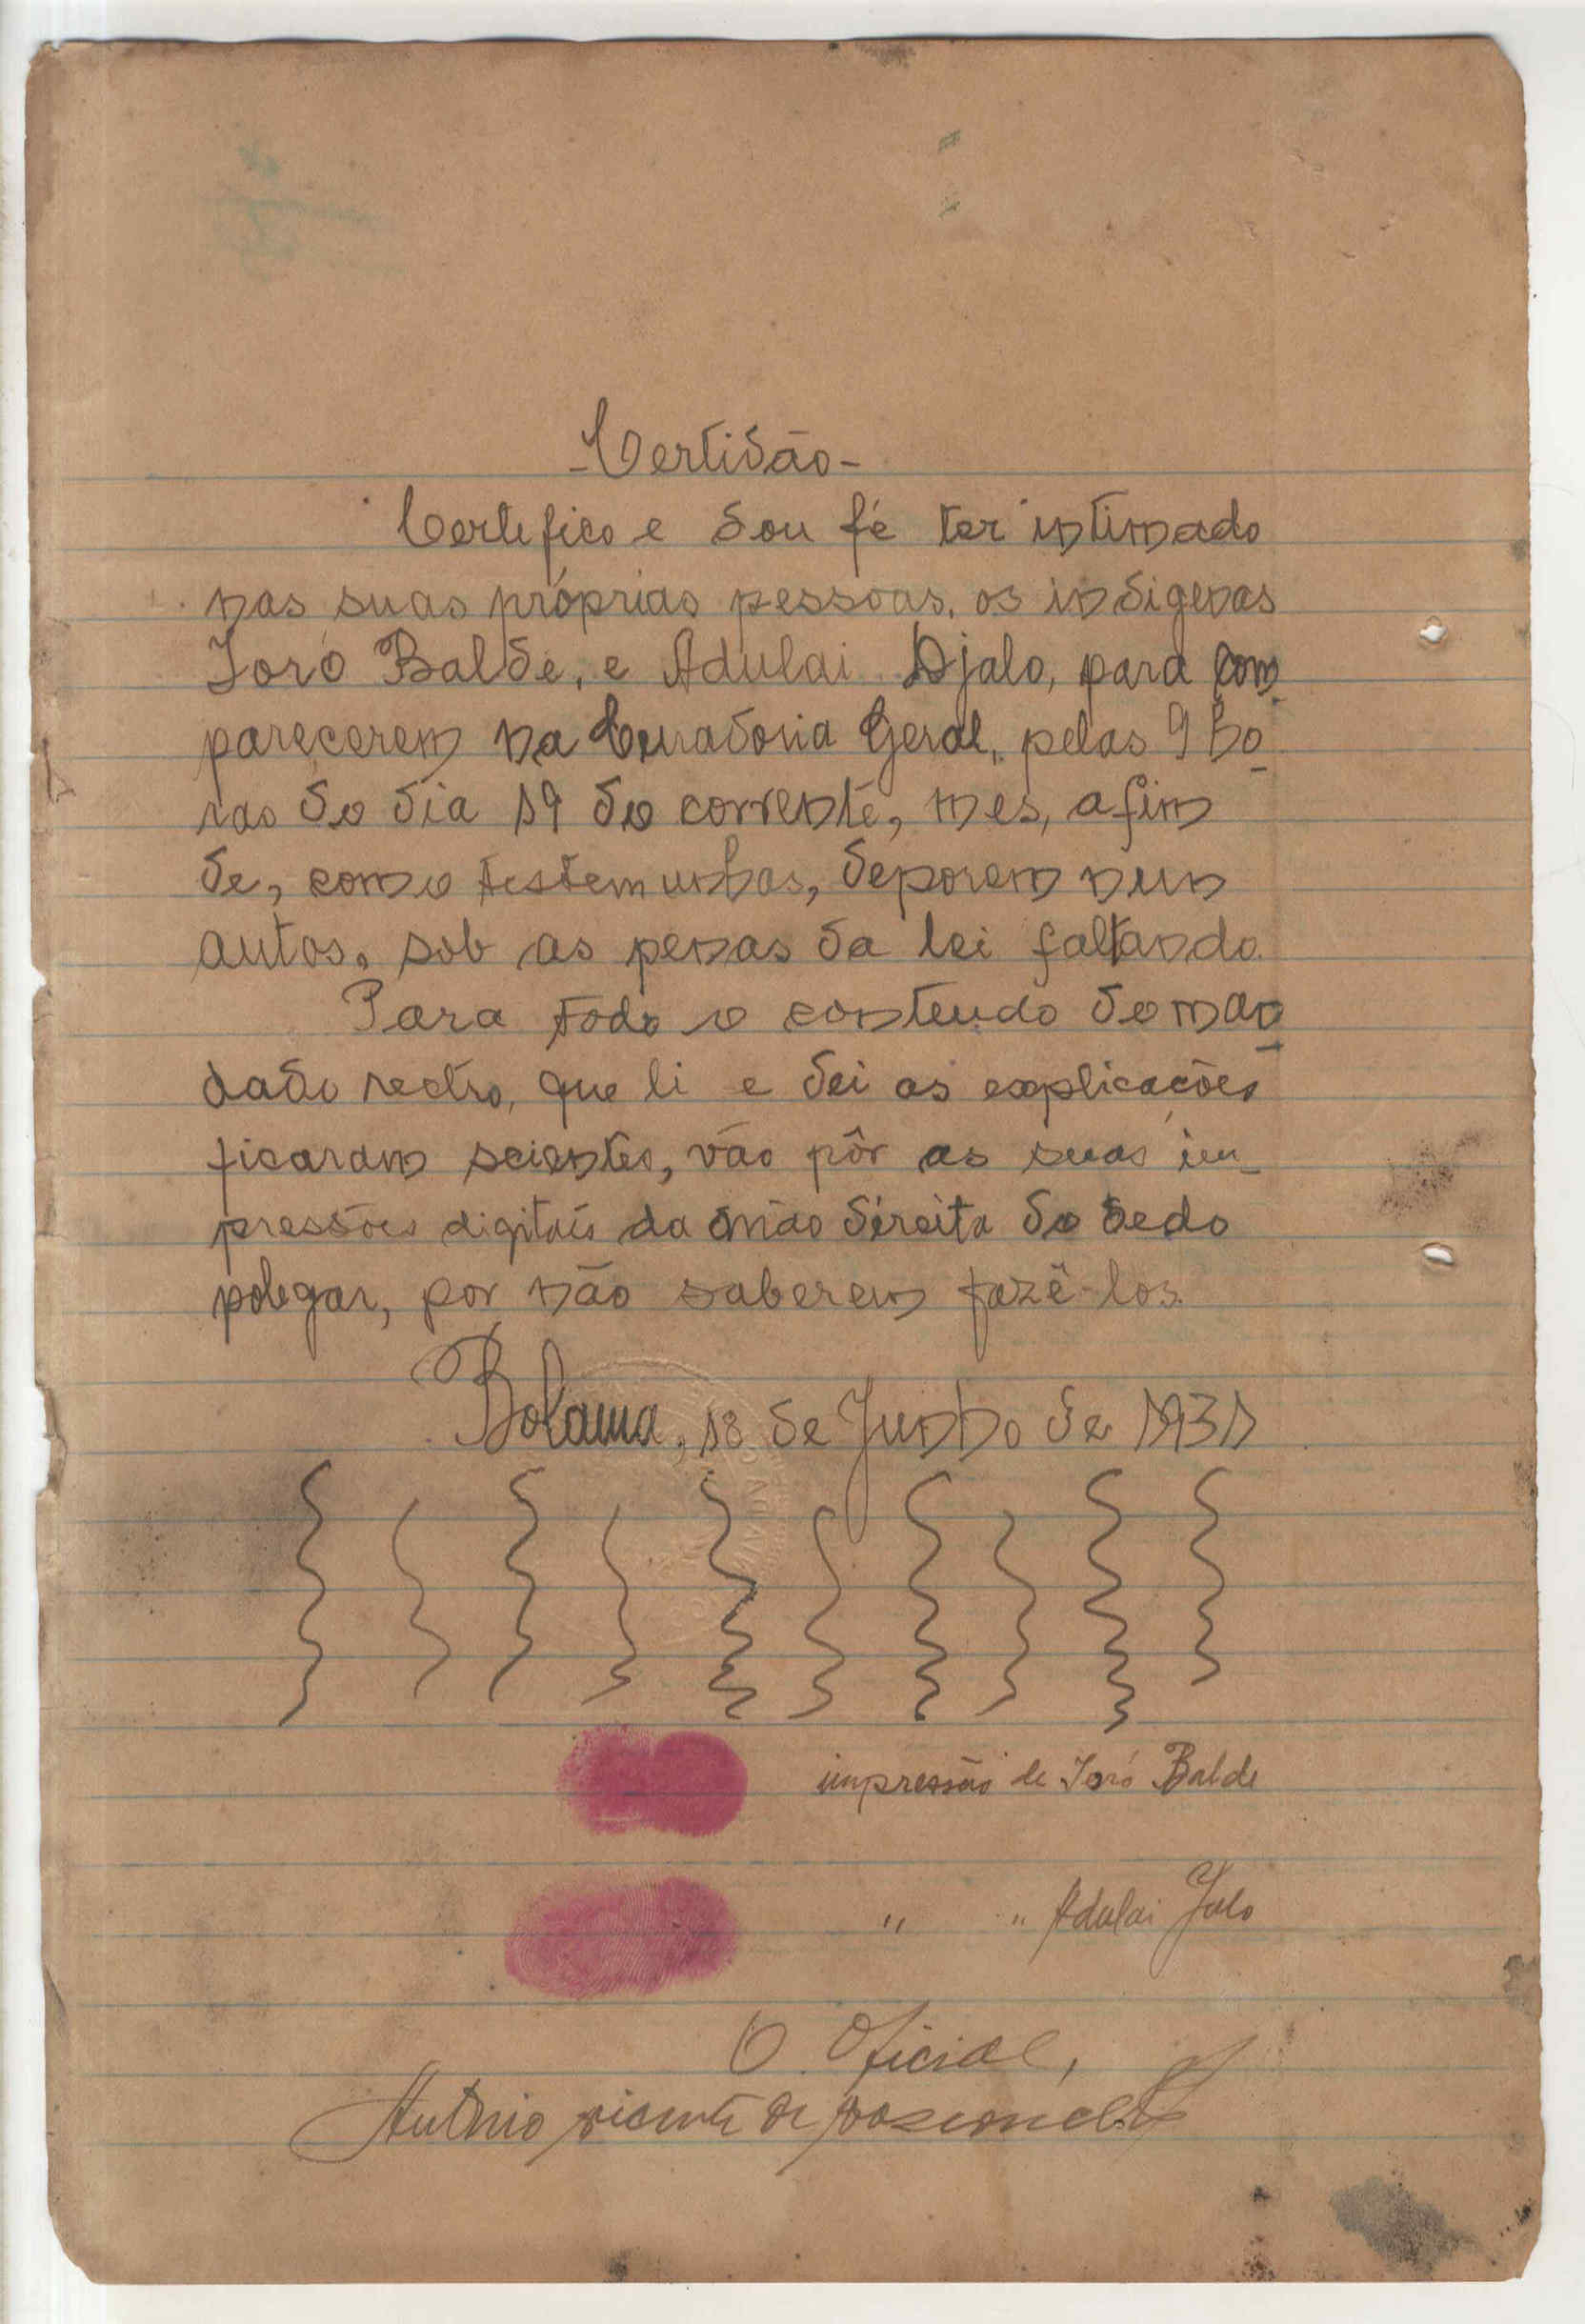 -Certidão-
Certefico e dou fé ter intimado
nas suas próprias pessoas, os indigenas
Joró Balde, e Adulai Djalo, para com
parecerem na Curadoria Geral, pelas 9 ho-
ras do dia 19 do corrente, mes, afim
de, como testemunhas, deporem nun
autos, sob as penas da lei faltando.
Para todo o conteudo do man-
dado rectro, que li e dei as explicações
ficaram scientes, vão pôr as suas im-
pressões digitais da mão direita do dedo
polegar, por não saberem fazê-los.
Bolama, 18 de Junho de 1931
impressão de Joró Balde
" " Adulai Jalo
O Oficial,
Antonio vicente de